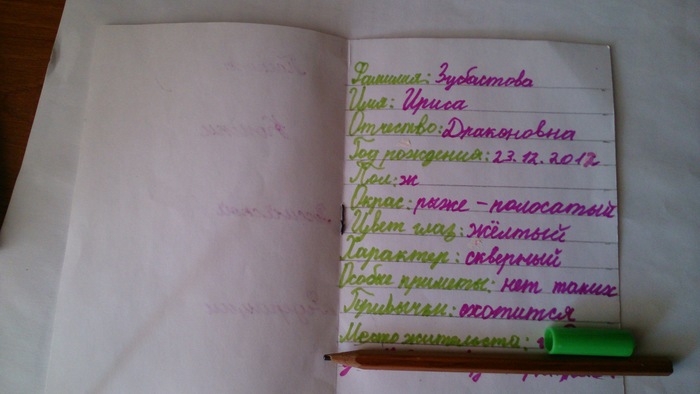 Фамилия: Зубастова
Имя: Ириса
Отчество: Драконовна
Год рождения: 23.12.2012
Пол: ж
Окрас: рыже-полосатый
Цвет глаз: жёлтый
Характер: скверный
Особые приметы: нет таких
Привычки: охотится
Место жительста: